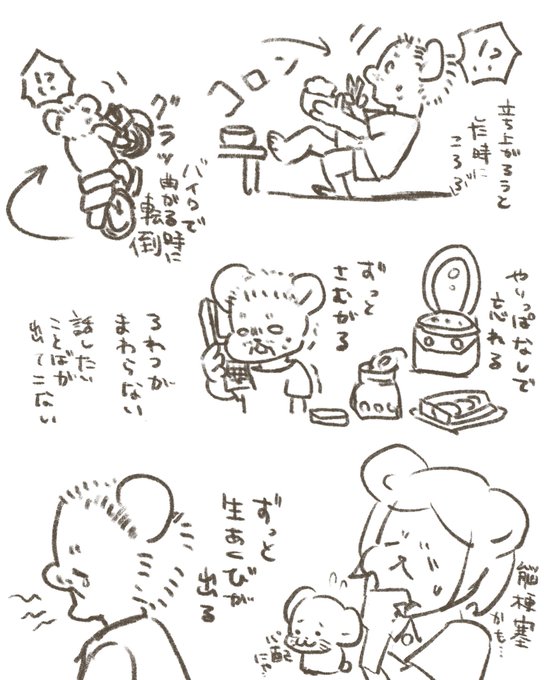 !?
コロン
立ち上がろうと
した時に
ころぶ
!?
グラッ
バイクで
曲がる時に
転倒
やりっぱなしで
忘れる
ずっと
さむがる
ろれつが
まわらない
話したい
ことばが
出てこない
能梗塞
かも…
心配
にゃ…
ずっと
生あくびが
出る